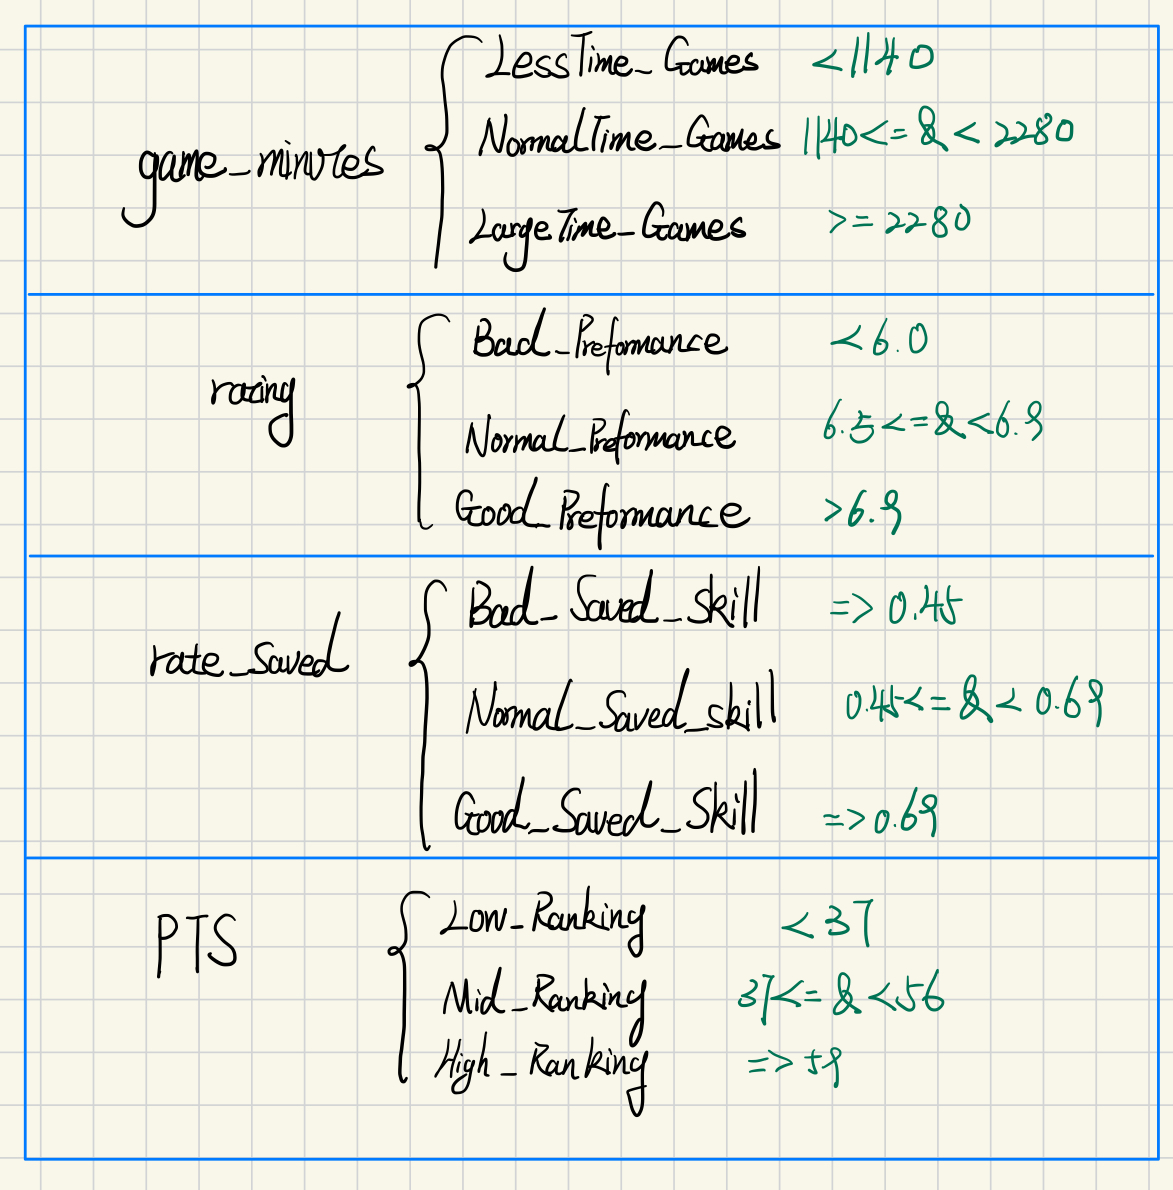 game_minutes
LessTime_Games <1140
NormalTime_Games 1140<=&<2280
LargeTime_Games >=2280
rating
Bad_Preformance <6.0
Normal_Preformance 6.5<=&<6.9
Good_Preformance >6.9
rate_Saved
Bad_Saved_Skill =>0.45
Normal_Saved_skill 0.45<=&<0.69
Good_Saved_Skill =>0.69
PTS
Low_Ranking <37
Mid_Ranking 37<=&<56
High_Ranking =>59